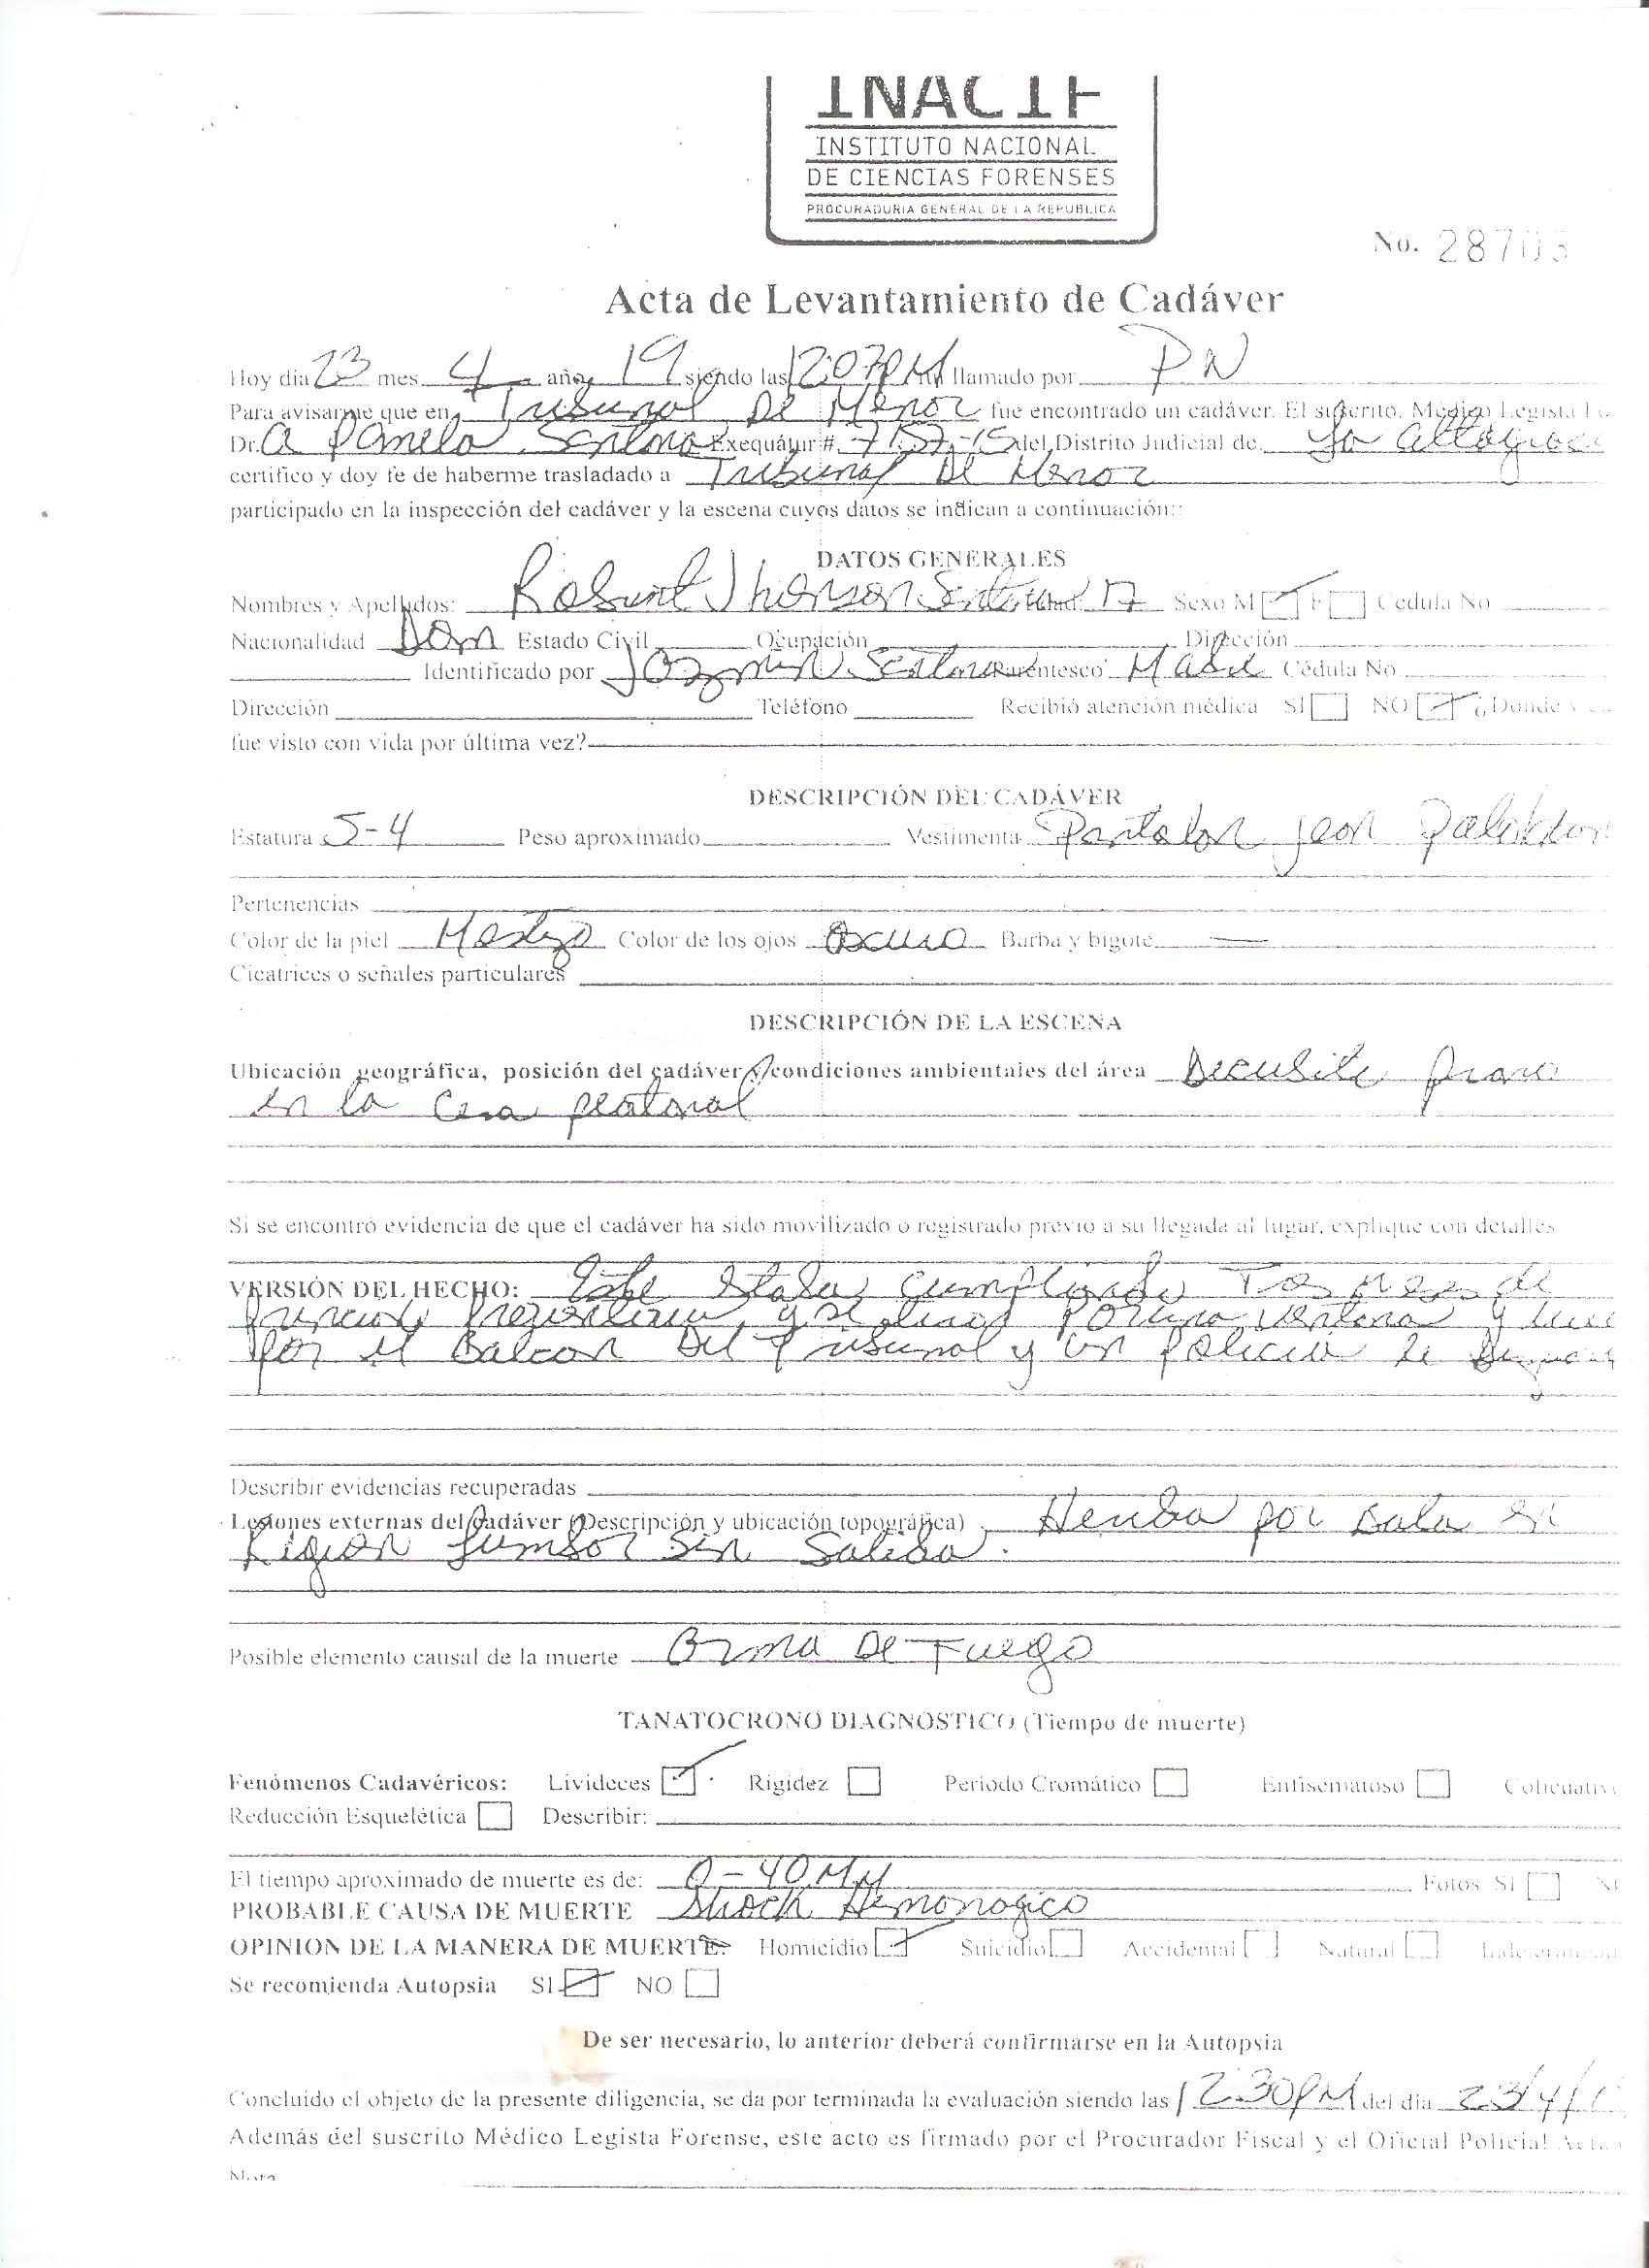 INACIF
INSTITUTO NACIONAL
DE CIENCIAS FORENSES
PROCURADURIA GENERAL DE LA REPUBLICA
No. 28703
Acta de Levantamiento de Cadáver
Hoy día 23 mes 4 año 19 siendo las 12:07PM un llamado por PN
Para avisarme que en Tribunal De Menor fue encontrado un cadáver. El suscrito, Médico Legista
Dr. a Pamela Santana Exequátur # 7157-15 del Distrito Judicial de. La Altagracia
certifico y doy fe de haberme trasladado a Tribunal De Menor
participado en la inspección del cadáver y la escena cuyos datos se indican a continuación:
DATOS GENERALES
Nombres y Apellidos: Santana Edad 17 Sexo M F Cedula No
Nacionalidad Dom Estado Civil Ocupación Dirección
Identificado por Santana Parentesco Madre Cédula No
Dirección Teléfono Recibió atención médica SI NO ¿Donde y
fue visto con vida por última vez?
DESCRIPCIÓN DEL CADÁVER
Estatura 5-4 Peso aproximado Vestimenta Pantalon jean
Pertenencias
Color de la piel Mestizo Color de los ojos Oscuro Barba y bigote —
Cicatrices o señales particulares
DESCRIPCIÓN DE LA ESCENA
Ubicación geográfica, posición del cadáver y condiciones ambientales del área Decubito prono
en la peatonal
Si se encontró evidencia de que el cadáver ha sido movilizado o registrado previo a su llegada al lugar, explique con detalles
VERSIÓN DEL HECHO: Este estaba cumpliendo Tres meses de
y se por una ventana y
por el Balcon Del Tribunal y un policia le
Describir evidencias recuperadas
Lesiones externas del cadáver (Descripción y ubicación topográfica) Herida por bala en
Region Lumbar Sin Salida.
Posible elemento causal de la muerte Arma De Fuego
TANATOCRONO DIAGNOSTICO (Tiempo de muerte)
Fenómenos Cadavéricos: Livideces Rigidez Periodo Cromático Enfisematoso Colicuativo
Reducción Esquelética Describir:
El tiempo aproximado de muerte es de: 0-40 Fotos SI NO
PROBABLE CAUSA DE MUERTE Shock Hemorragico
OPINION DE LA MANERA DE MUERTE: Homicidio Suicidio Accidental Natural Indeterminada
Se recomienda Autopsia SI NO
De ser necesario, lo anterior deberá confirmarse en la Autopsia
Concluido el objeto de la presente diligencia, se da por terminada la evaluación siendo las 12:30PM del día 23/4/1
Además del suscrito Médico Legista Forense, este acto es firmado por el Procurador Fiscal y el Oficial Policial
Nota